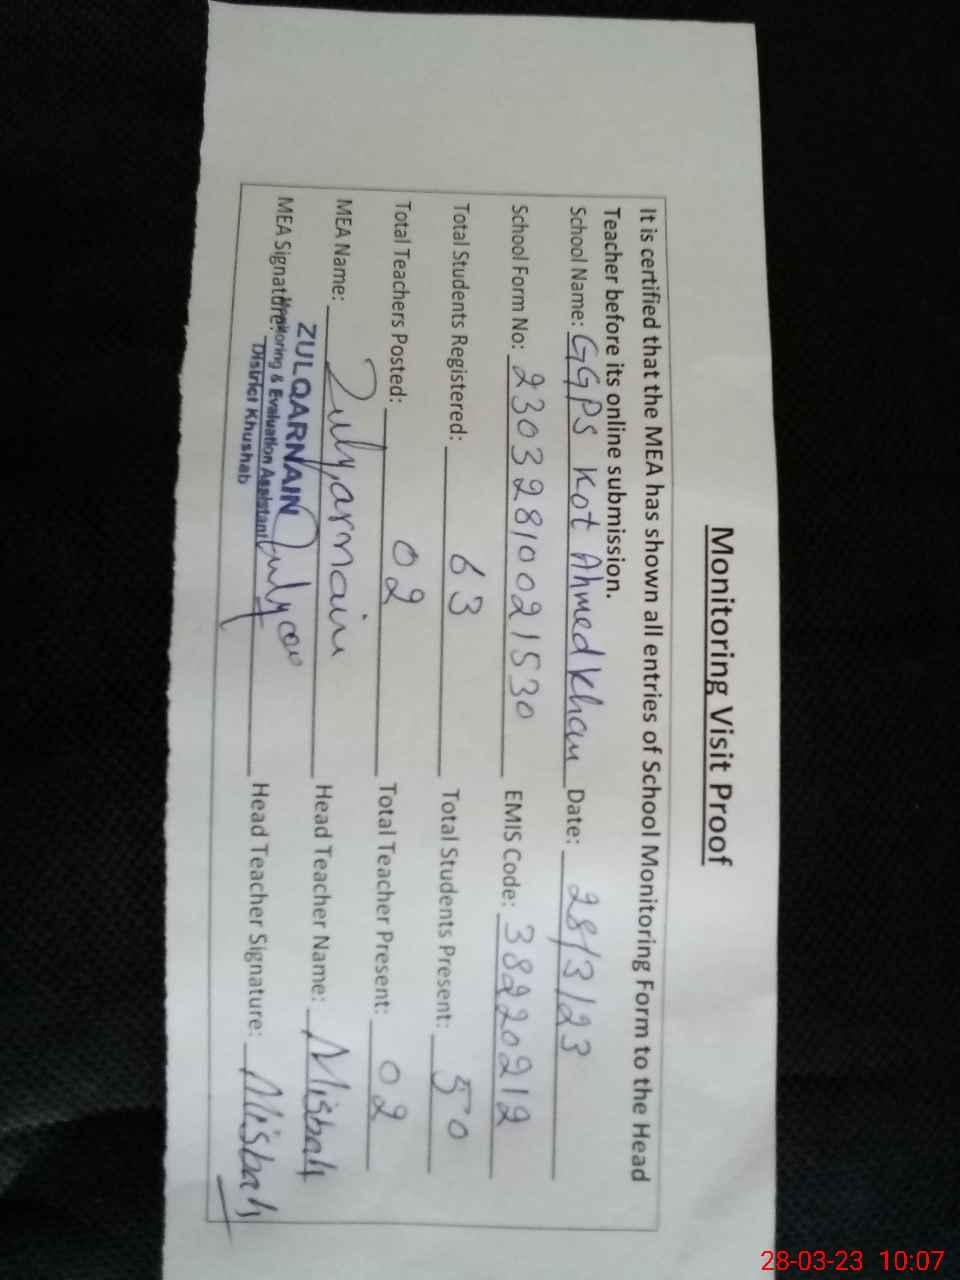 Monitoring Visit Proof
It is certified that the MEA has shown all entries of School Monitoring Form to the Head
Teacher before its online submission.
School Name: GGPS Kot Ahmed Khan Date: 28/3/23
School Form No: 23032810021530 EMIS Code: 38220212
Total Students Registered: 63 Total Students Present: 50
Total Teachers Posted: 02 Total Teacher Present: 02
MEA Name: Zulqarnain Head Teacher Name: Misbah
MEA Signature: Head Teacher Signature: Misbah
ZULQARNAIN
Monitoring & Evaluation Assistant
District Khushab
28-03-23 10:07